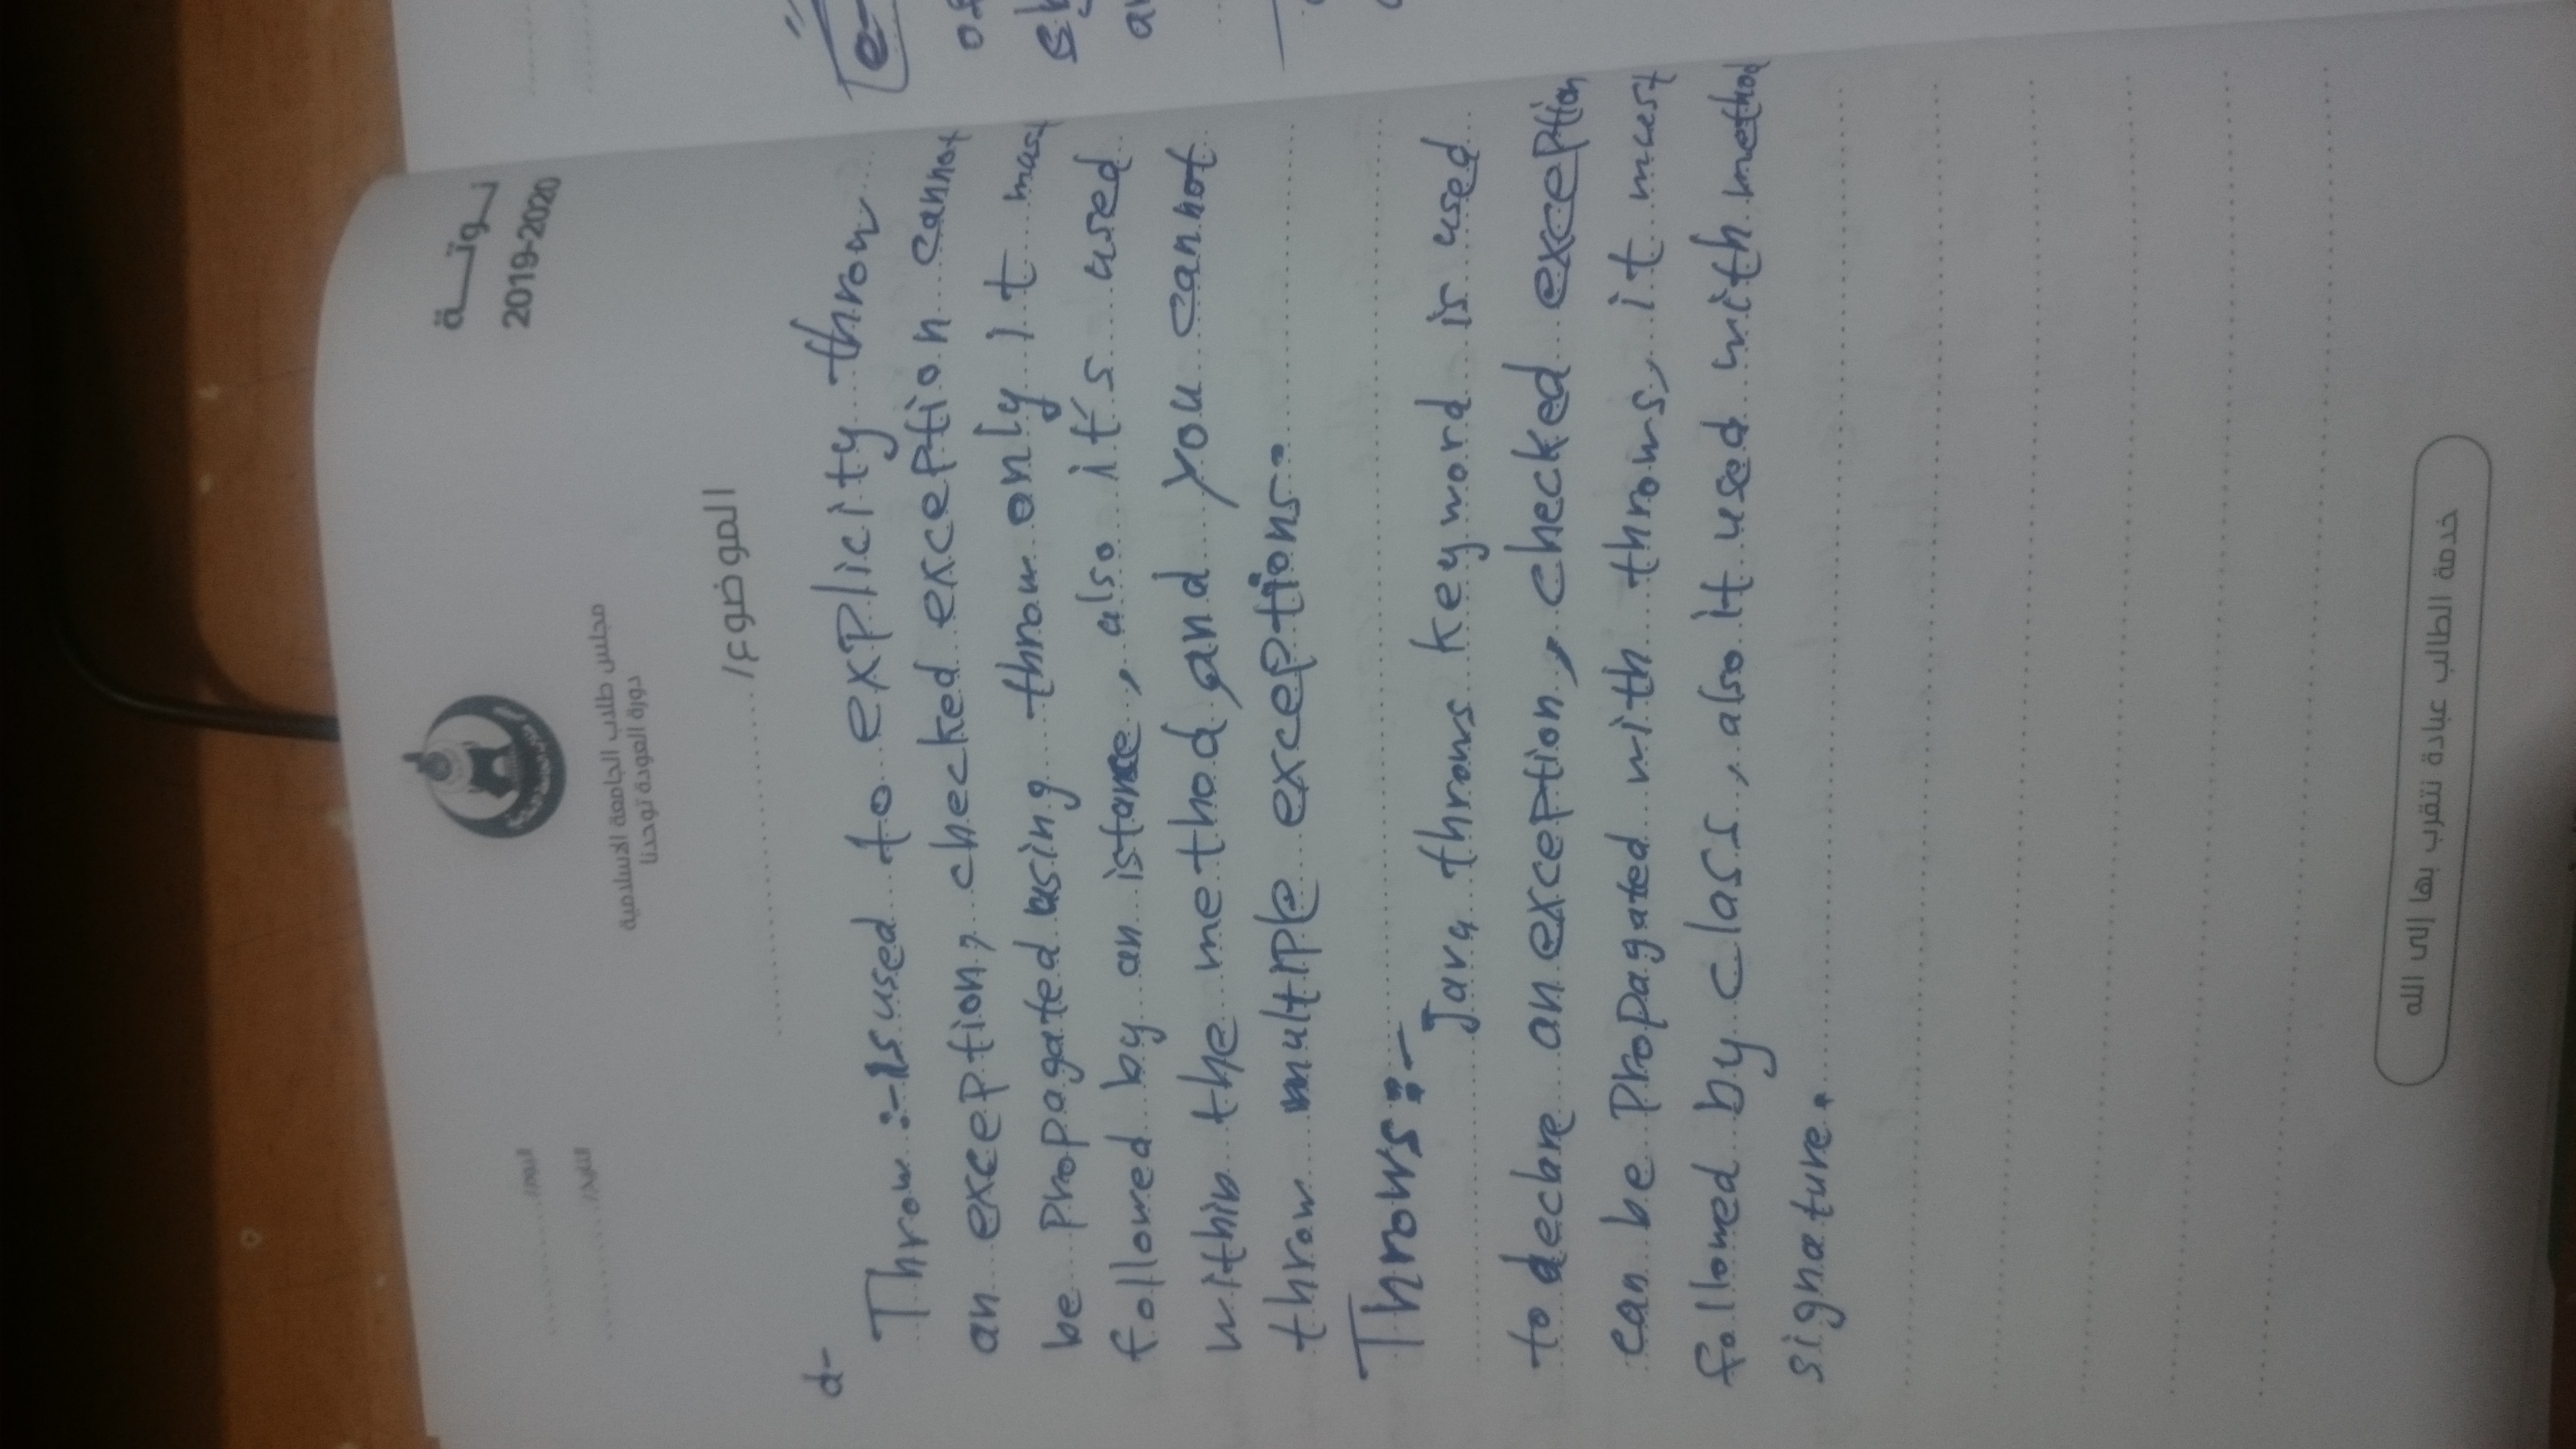 نـوتـــة
2019-2020
مجلس طلاب الجامعة الإسلامية
دورة العودة توحدنا
اليوم/
التاريخ/
الموضوع/
d-
Throw :- is used to explicity throw
an exception, checked exception cannot
be propagated using throw only it must
followed by an istance, also it's used
within the method, and you cannot
throw multiple exceptions.
Throws :-
Java throws keyword is used
to declare an exception, checked exception
can be propagated with throws, it must
followed by class, also it used with method
signature.
خدمة الطالب عبادة نتقرب بها إلى الله
e-